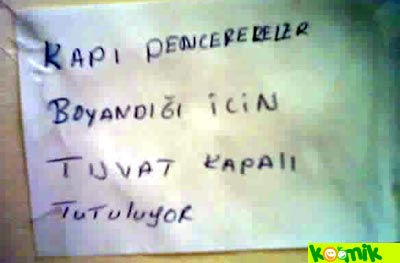 KAPI PENCERELELER
BOYANDIĞI İCİN
TUVAT KAPALI
TUTULUYOR
komik